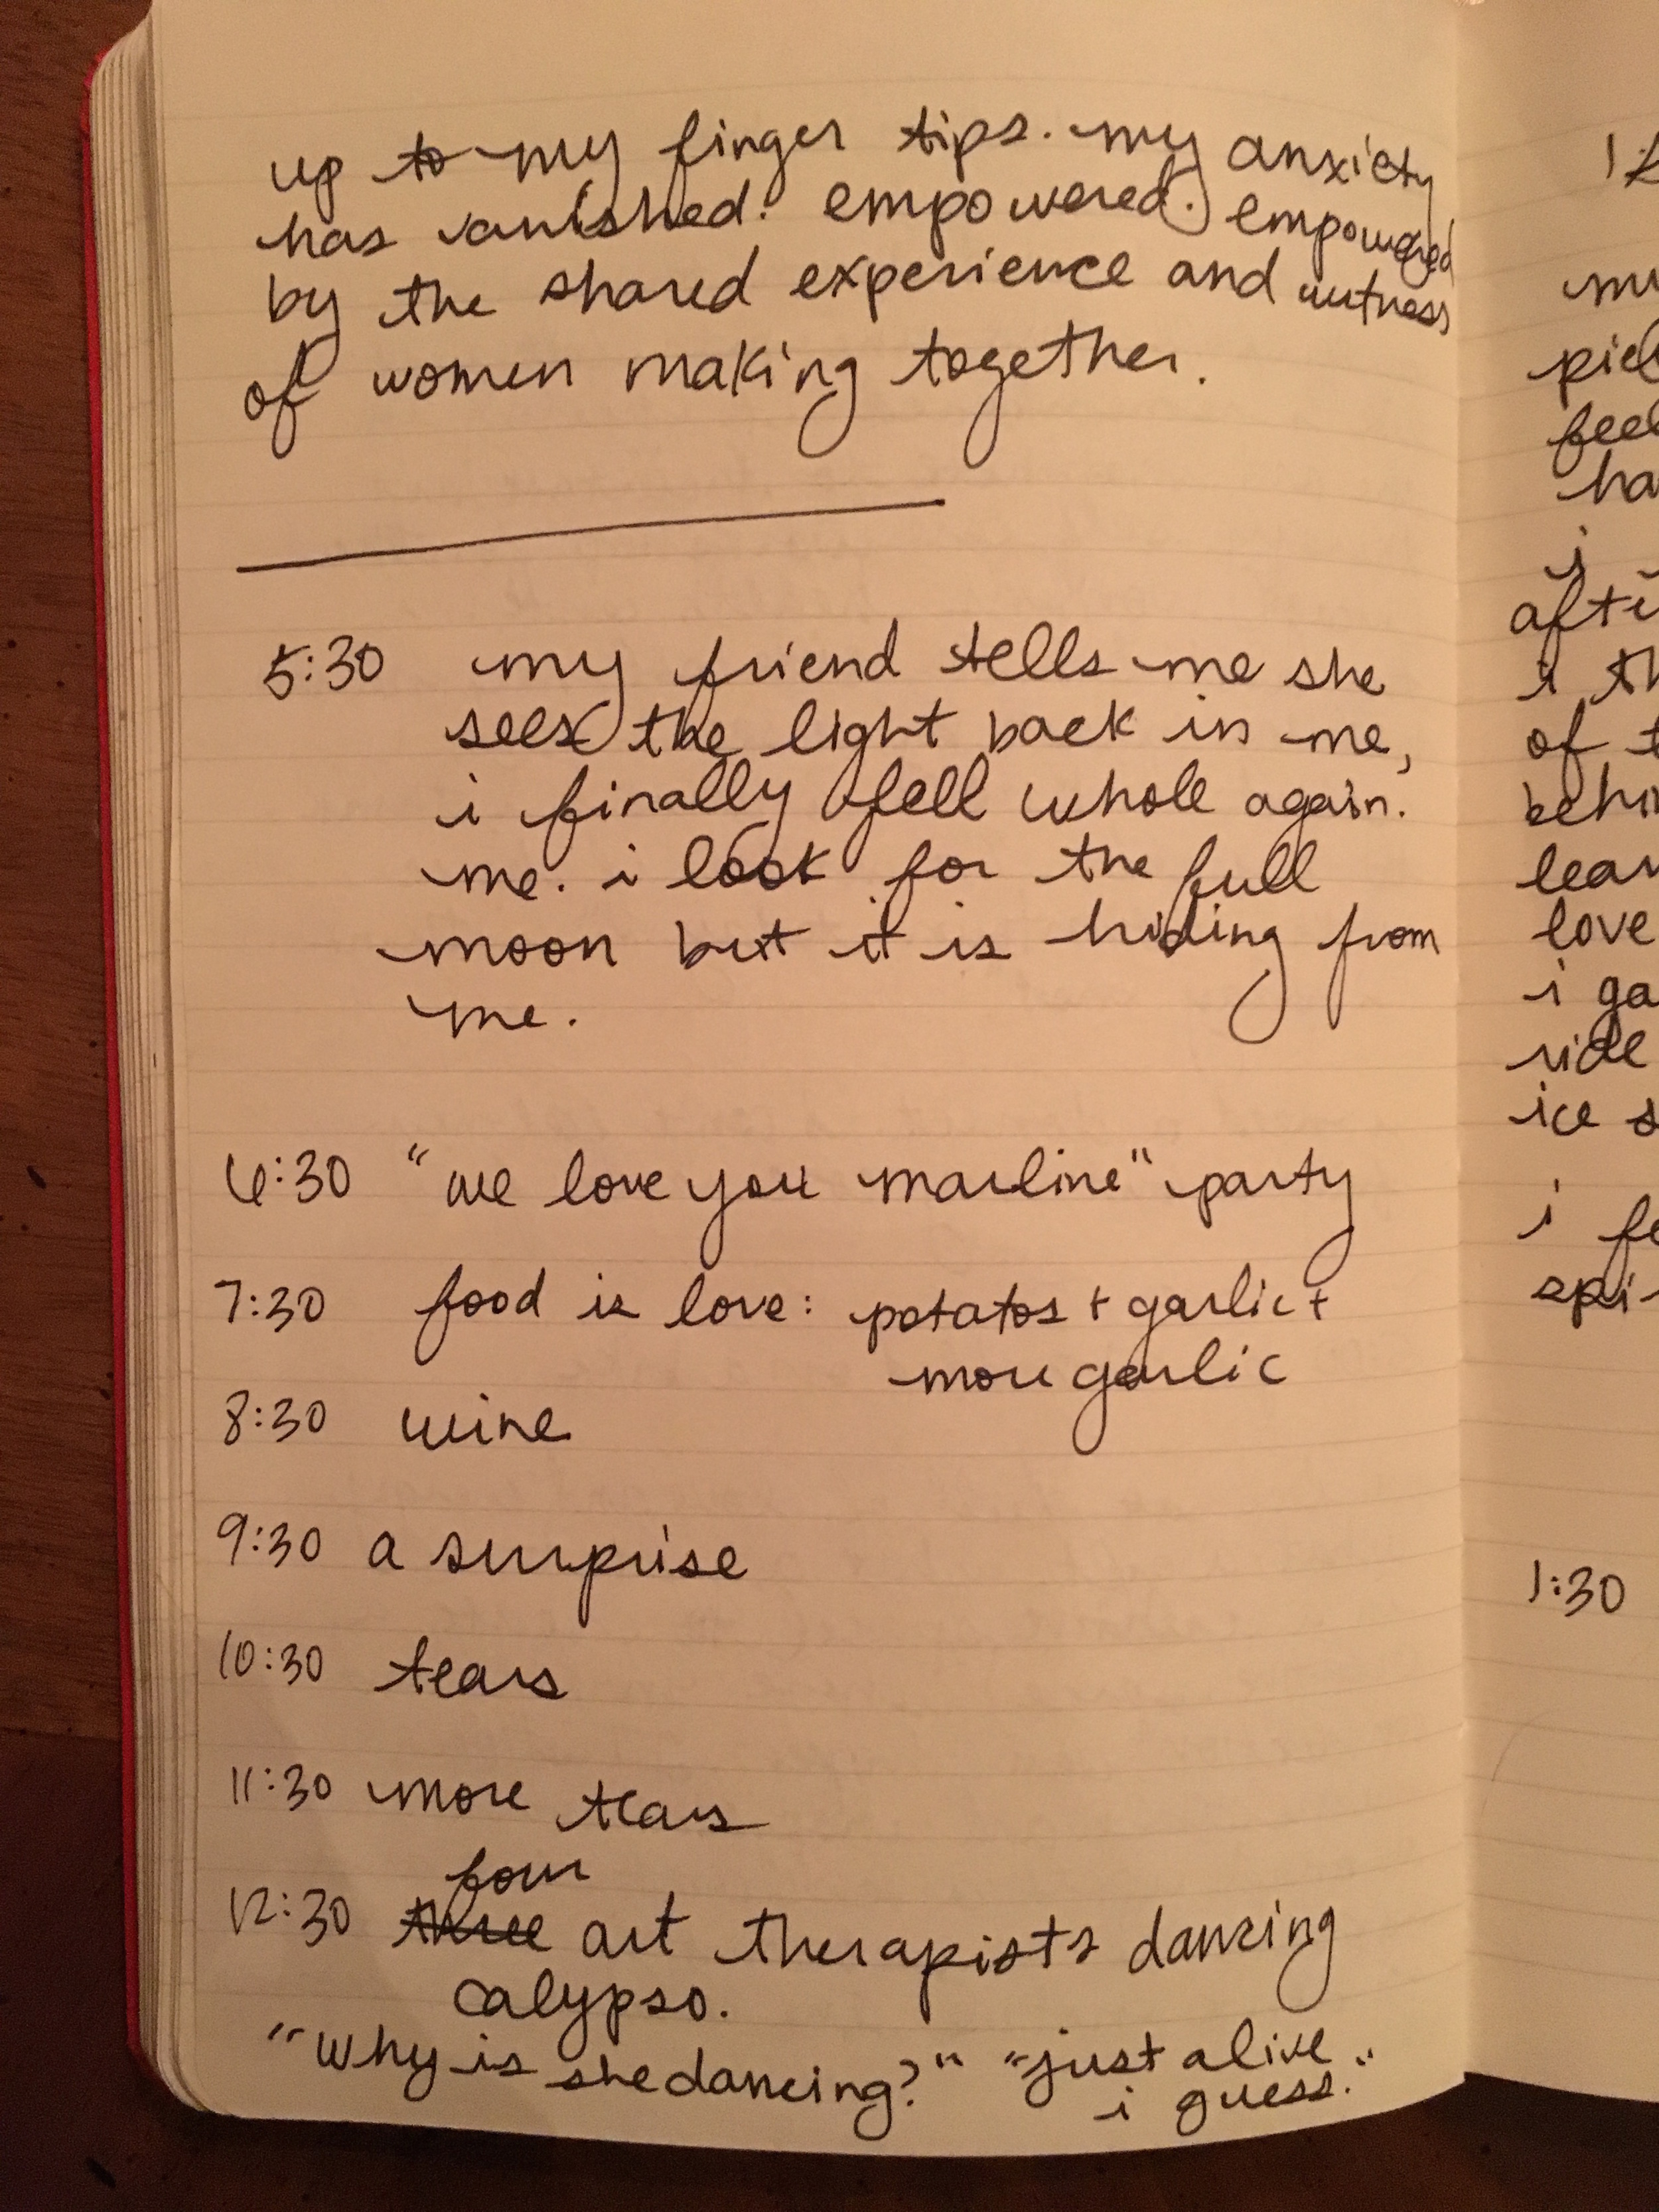 up to my finger tips. my anxiety
has vanished. empowered. empowered
by the shared experience and witness
of women making together.
5:30 my friend tells me she
sees the light back in me,
i finally fell whole again.
me. i look for the full
moon but it is hiding from
me.
6:30 "we love you marline" party
7:30 food is love: potatos + garlic +
more garlic
8:30 wine
9:30 a surprise
10:30 tears
11:30 more tears
four
12:30 three art therapists dancing
calypso.
"why is she dancing?" "just alive
i guess."
my
feel
i
i
of
love
ride
ice
i
1:30